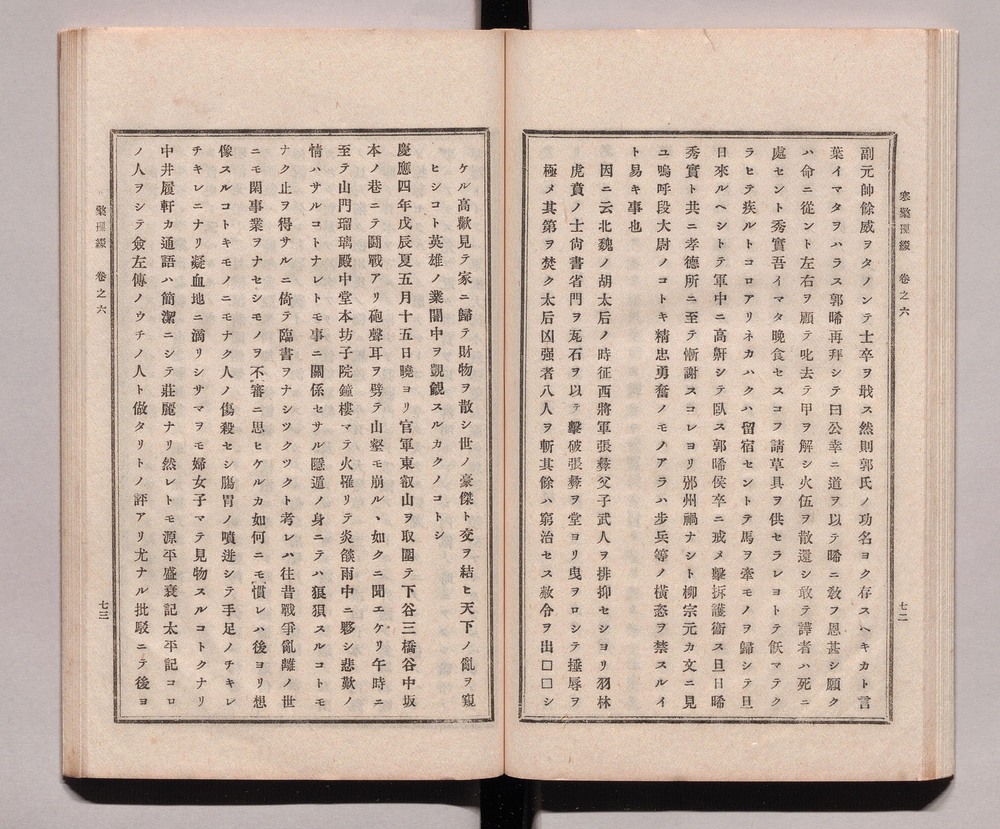 寒檠璅綴 卷之六 七二
副元帥餘威ヲタノンテ士卒ヲ戢ス然則郭氏ノ功名ヨク存スヘキカト言
葉イマタヲハラス郭晞再拜シテ曰公幸ニ道ヲ以テ晞ニ敎フ恩甚シ願ク
ハ命ニ從ント左右ヲ顧テ叱去テ甲ヲ解シ火伍ヲ散還シ敢テ譁者ハ死ニ
處セント秀實吾イマタ晩食セスコフ請草具ヲ供セラレヨトテ飫マテク
ラヒテ疾ルトコロアリネカハクハ留宿セントテ馬ヲ牽モノヲ歸シテ旦
日來ルヘシトテ軍中ニ高鼾シテ臥ス郭晞侯卒ニ戒メ擊柝護衞ス旦日晞
秀實ト共ニ孝德所ニ至テ慚謝スコレヨリ邠州禍ナシト柳宗元カ文ニ見
ユ嗚呼段大尉ノコトキ精忠勇奮ノモノアラハ步兵等ノ橫恣ヲ禁スルイ
ト易キ事也
因ニ云北魏ノ胡太后ノ時征西將軍張彝父子武人ヲ排抑セシヨリ羽林
虎賁ノ士尙書省門ヲ瓦石ヲ以テ擊破張彝ヲ堂ヨリ曳ヲロシテ捶辱ヲ
極メ其第ヲ焚ク太后凶强者八人ヲ斬其餘ハ窮治セス赦令ヲ出□□シ
ケル高歡見テ家ニ歸テ財物ヲ散シ世ノ豪傑ト交ヲ結ヒ天下ノ亂ヲ窺
ヒシコト英雄ノ業闇中ヲ覬覦スルカクノコトシ
慶應四年戊辰夏五月十五日曉ヨリ官軍東叡山ヲ取圍テ下谷三橋谷中坂
本ノ巷ニテ鬪戰アリ砲聲耳ヲ劈テ山壑モ崩ルヽ如クニ聞エケリ午時ニ
至テ山門瑠璃殿中堂本坊子院鐘樓マテ火罹リテ炎燄雨中ニ夥シ悲歎ノ
情ハサルコトナレトモ事ニ關係セサル隱遁ノ身ニテハ狼狽スルコトモ
ナク止ヲ得サルニ倚テ臨書ヲナシツクツクト考レハ往昔戰爭亂離ノ世
ニモ閑事業ヲナセシモノヲ不審ニ思ヒケルカ如何ニモ慣レハ後ヨリ想
像スルコトキモノニモナク人ノ傷殺セシ腸胃ノ噴迸シテ手足ノチキレ
チキレニナリ凝血地ニ滴リシサマヲモ婦女子マテ見物スルコトクナリ
中井履軒カ通語ハ簡潔ニシテ莊麗ナリ然レトモ源平盛衰記太平記コロ
ノ人ヲシテ僉左傳ノウチノ人ト做タリトノ評アリ尤ナル批駁ニテ後ヨ
檠璅綴 卷之六 七三